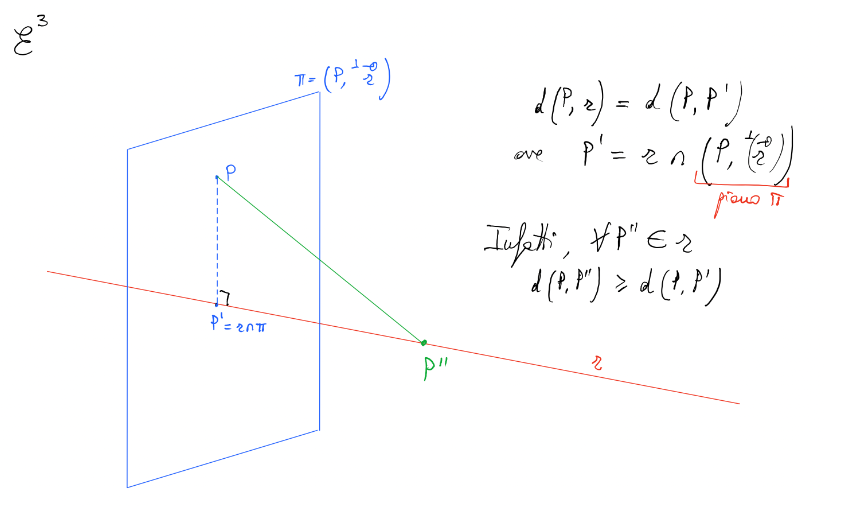 ℰ³
π = (P, ⊥r⃗)
P
P' = r ∩ π
P''
r
d(P, r) = d(P, P')
ove P' = r ∩ (P, ⊥(r⃗))
piano π
Infatti, ∀ P'' ∈ r
d(P, P'') ⩾ d(P, P')